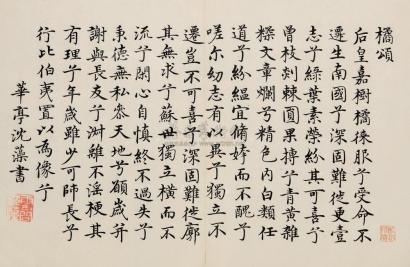 橘頌
后皇嘉樹橘徠服兮受命不
遷生南國兮深固難徙更壹
志兮綠葉素榮紛其可喜兮
曾枝剡棘圓果摶兮青黃雜
糅文章爛兮精色內白類任
道兮紛縕宜脩姱而不醜兮
嗟尔幼志有以異兮獨立不
遷豈不可喜兮深固難徙廓
其無求兮蘇世獨立橫而不
流兮閉心自慎終不過失兮
秉德無私參天地兮願歲并
謝與長友兮淑離不淫梗其
有理兮年歲雖少可師長兮
行比伯夷置以為像兮
華亭沈藻書